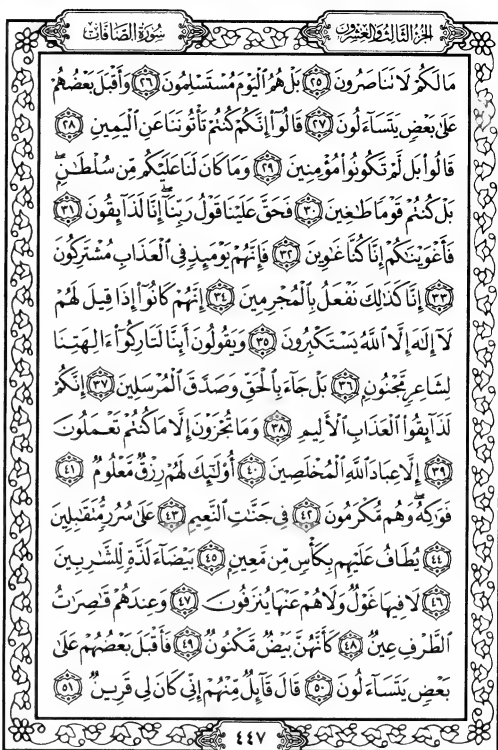 الجزء الثالث والعشرون
سورة الصافات
مَا لَكُمْ لَا تَنَاصَرُونَ ٢٥ بَلْ هُمُ الْيَوْمَ مُسْتَسْلِمُونَ ٢٦ وَأَقْبَلَ بَعْضُهُمْ
عَلَى بَعْضٍ يَتَسَاءَلُونَ ٢٧ قَالُوا إِنَّكُمْ كُنتُمْ تَأْتُونَنَا عَنِ الْيَمِينِ ٢٨
قَالُوا بَل لَّمْ تَكُونُوا مُؤْمِنِينَ ٢٩ وَمَا كَانَ لَنَا عَلَيْكُم مِّن سُلْطَٰنٍ ۖ
بَلْ كُنتُمْ قَوْمًا طَٰغِينَ ٣٠ فَحَقَّ عَلَيْنَا قَوْلُ رَبِّنَا ۖ إِنَّا لَذَائِقُونَ ٣١
فَأَغْوَيْنَٰكُمْ إِنَّا كُنَّا غَٰوِينَ ٣٢ فَإِنَّهُمْ يَوْمَئِذٍ فِي الْعَذَابِ مُشْتَرِكُونَ
٣٣ إِنَّا كَذَٰلِكَ نَفْعَلُ بِالْمُجْرِمِينَ ٣٤ إِنَّهُمْ كَانُوا إِذَا قِيلَ لَهُمْ
لَا إِلَٰهَ إِلَّا اللَّهُ يَسْتَكْبِرُونَ ٣٥ وَيَقُولُونَ أَئِنَّا لَتَارِكُوا ءَالِهَتِنَا
لِشَاعِرٍ مَّجْنُونٍ ٣٦ بَلْ جَاءَ بِالْحَقِّ وَصَدَّقَ الْمُرْسَلِينَ ٣٧ إِنَّكُمْ
لَذَائِقُوا الْعَذَابِ الْأَلِيمِ ٣٨ وَمَا تُجْزَوْنَ إِلَّا مَا كُنتُمْ تَعْمَلُونَ
٣٩ إِلَّا عِبَادَ اللَّهِ الْمُخْلَصِينَ ٤٠ أُولَٰئِكَ لَهُمْ رِزْقٌ مَّعْلُومٌ ٤١
فَوَٰكِهُ ۖ وَهُم مُّكْرَمُونَ ٤٢ فِي جَنَّٰتِ النَّعِيمِ ٤٣ عَلَى سُرُرٍ مُّتَقَٰبِلِينَ
٤٤ يُطَافُ عَلَيْهِم بِكَأْسٍ مِّن مَّعِينٍ ٤٥ بَيْضَاءَ لَذَّةٍ لِّلشَّٰرِبِينَ
٤٦ لَا فِيهَا غَوْلٌ وَلَا هُمْ عَنْهَا يُنزَفُونَ ٤٧ وَعِندَهُمْ قَٰصِرَٰتُ
الطَّرْفِ عِينٌ ٤٨ كَأَنَّهُنَّ بَيْضٌ مَّكْنُونٌ ٤٩ فَأَقْبَلَ بَعْضُهُمْ عَلَى
بَعْضٍ يَتَسَاءَلُونَ ٥٠ قَالَ قَائِلٌ مِّنْهُمْ إِنِّي كَانَ لِي قَرِينٌ ٥١
٤٤٧